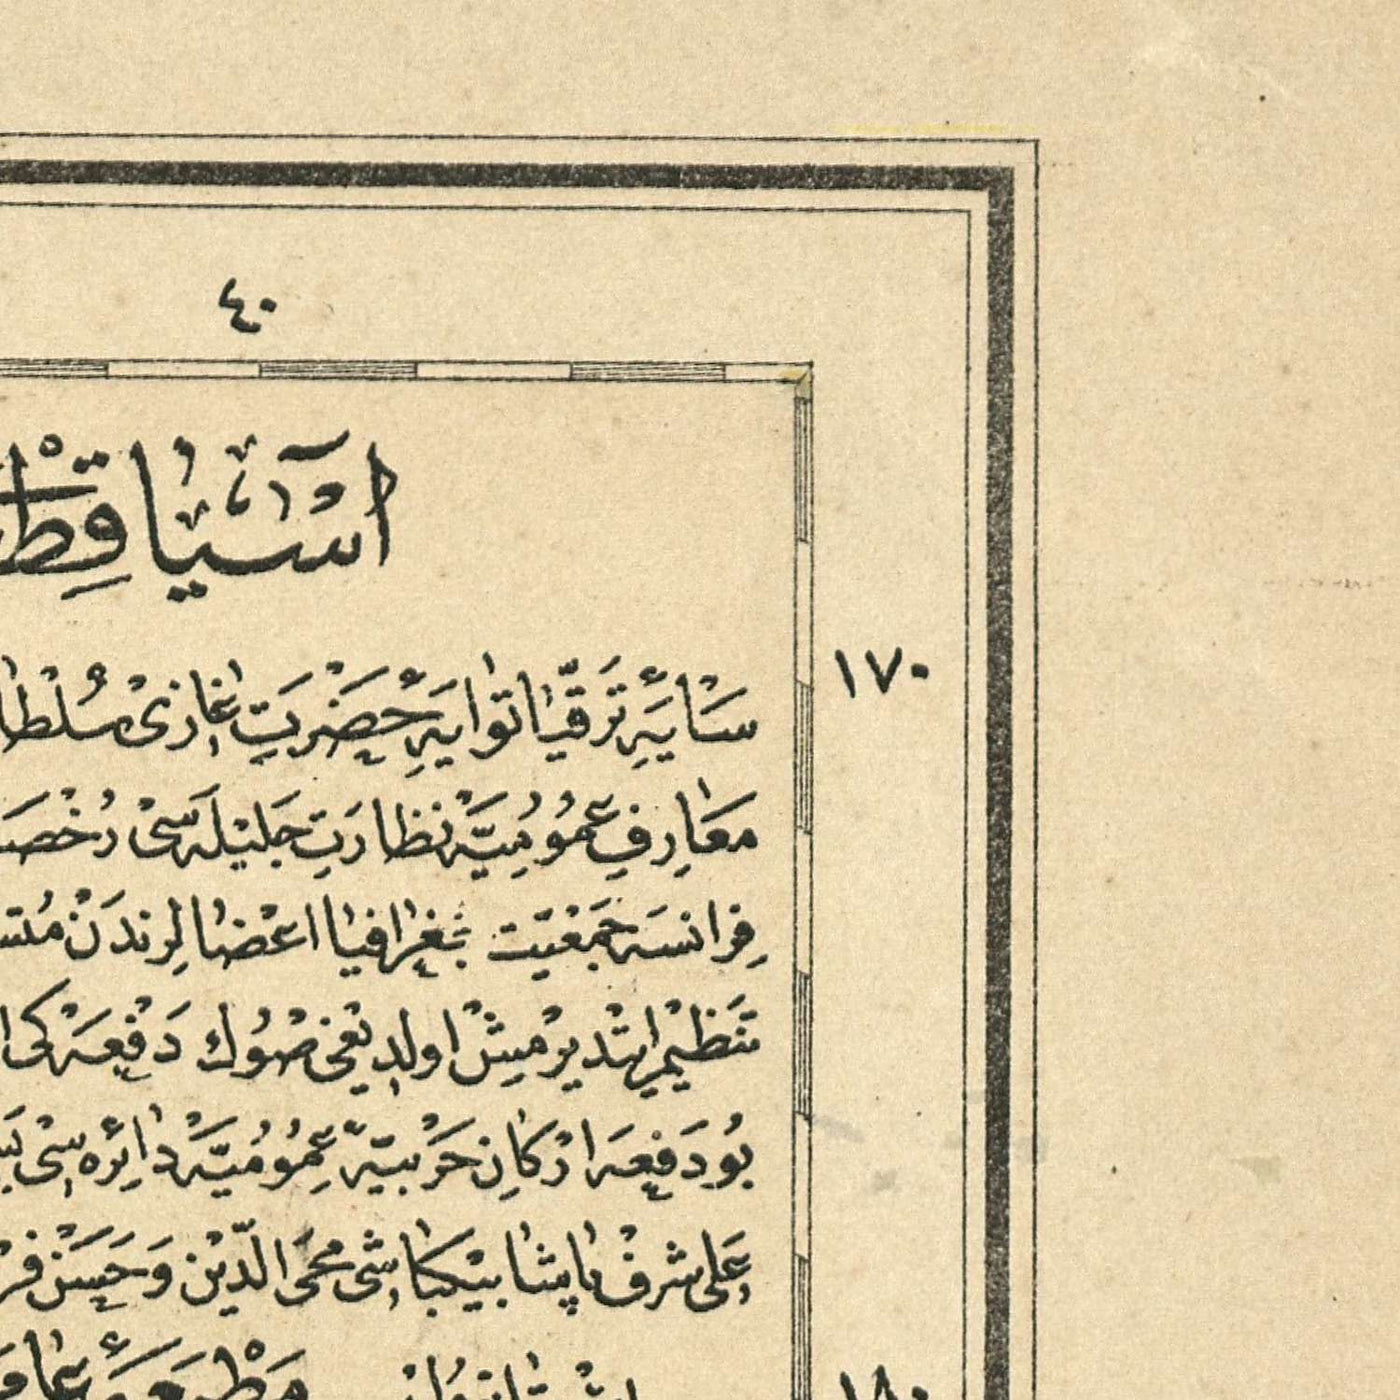 ٤٠
آسيا
١٧٠
سايۀ ترقياتوايۀ حضرت غازى
معارف عموميه نظارت جليله سى
فرانسه جمعيت جغرافيا اعضالرندن
تنظيم ايتديرمش اولديغى صوك دفعه كى
بو دفعه اركان حربيۀ عموميه دائره سى
على شرف پاشا بيكباشى محى الدين و حسن
١٨٠